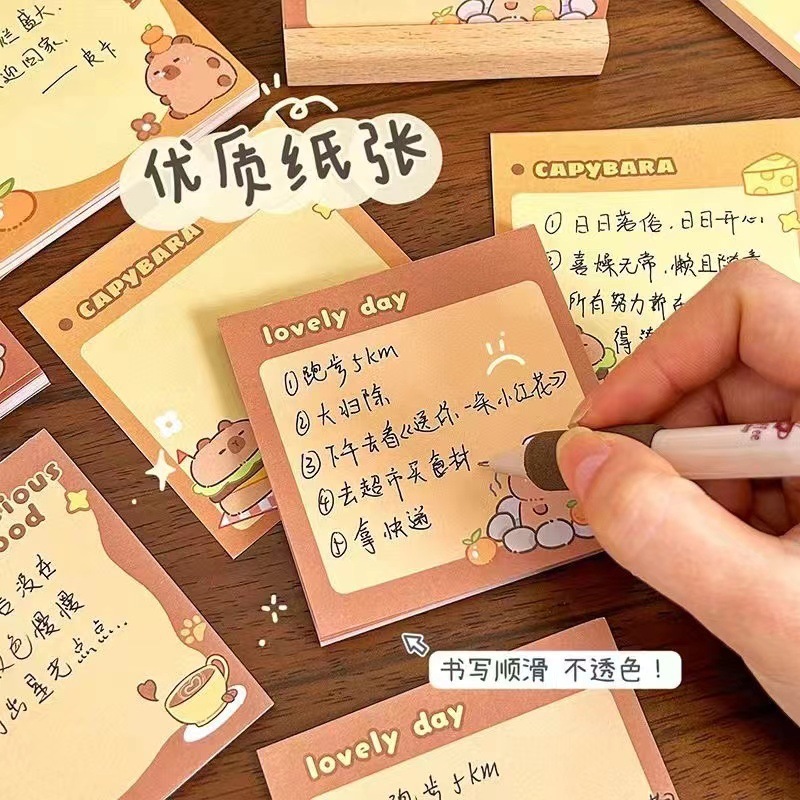 盛大.
回家.
——皮卡
优质纸张
CAPYBARA
① 日日落俗,日日开心
喜燥无常,懒且随意
所有努力都在
得
CAPYBARA
lovely day
①跑步5km
②大扫除
③下午去看《送你一朵小红花》
④去超市买食材
⑤拿快递
书写顺滑 不透色!
ood
没在
色慢慢
出星光点点...
lovely day
跑步5km